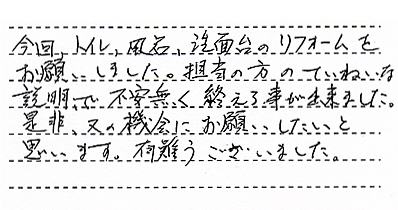 今回、トイレ、風呂、洗面台のリフォームを
お願いしました。担当の方のていねいな
説明で不安無く終える事が出来ました。
是非、又の機会にお願いしたいと
思います。有難うございました。